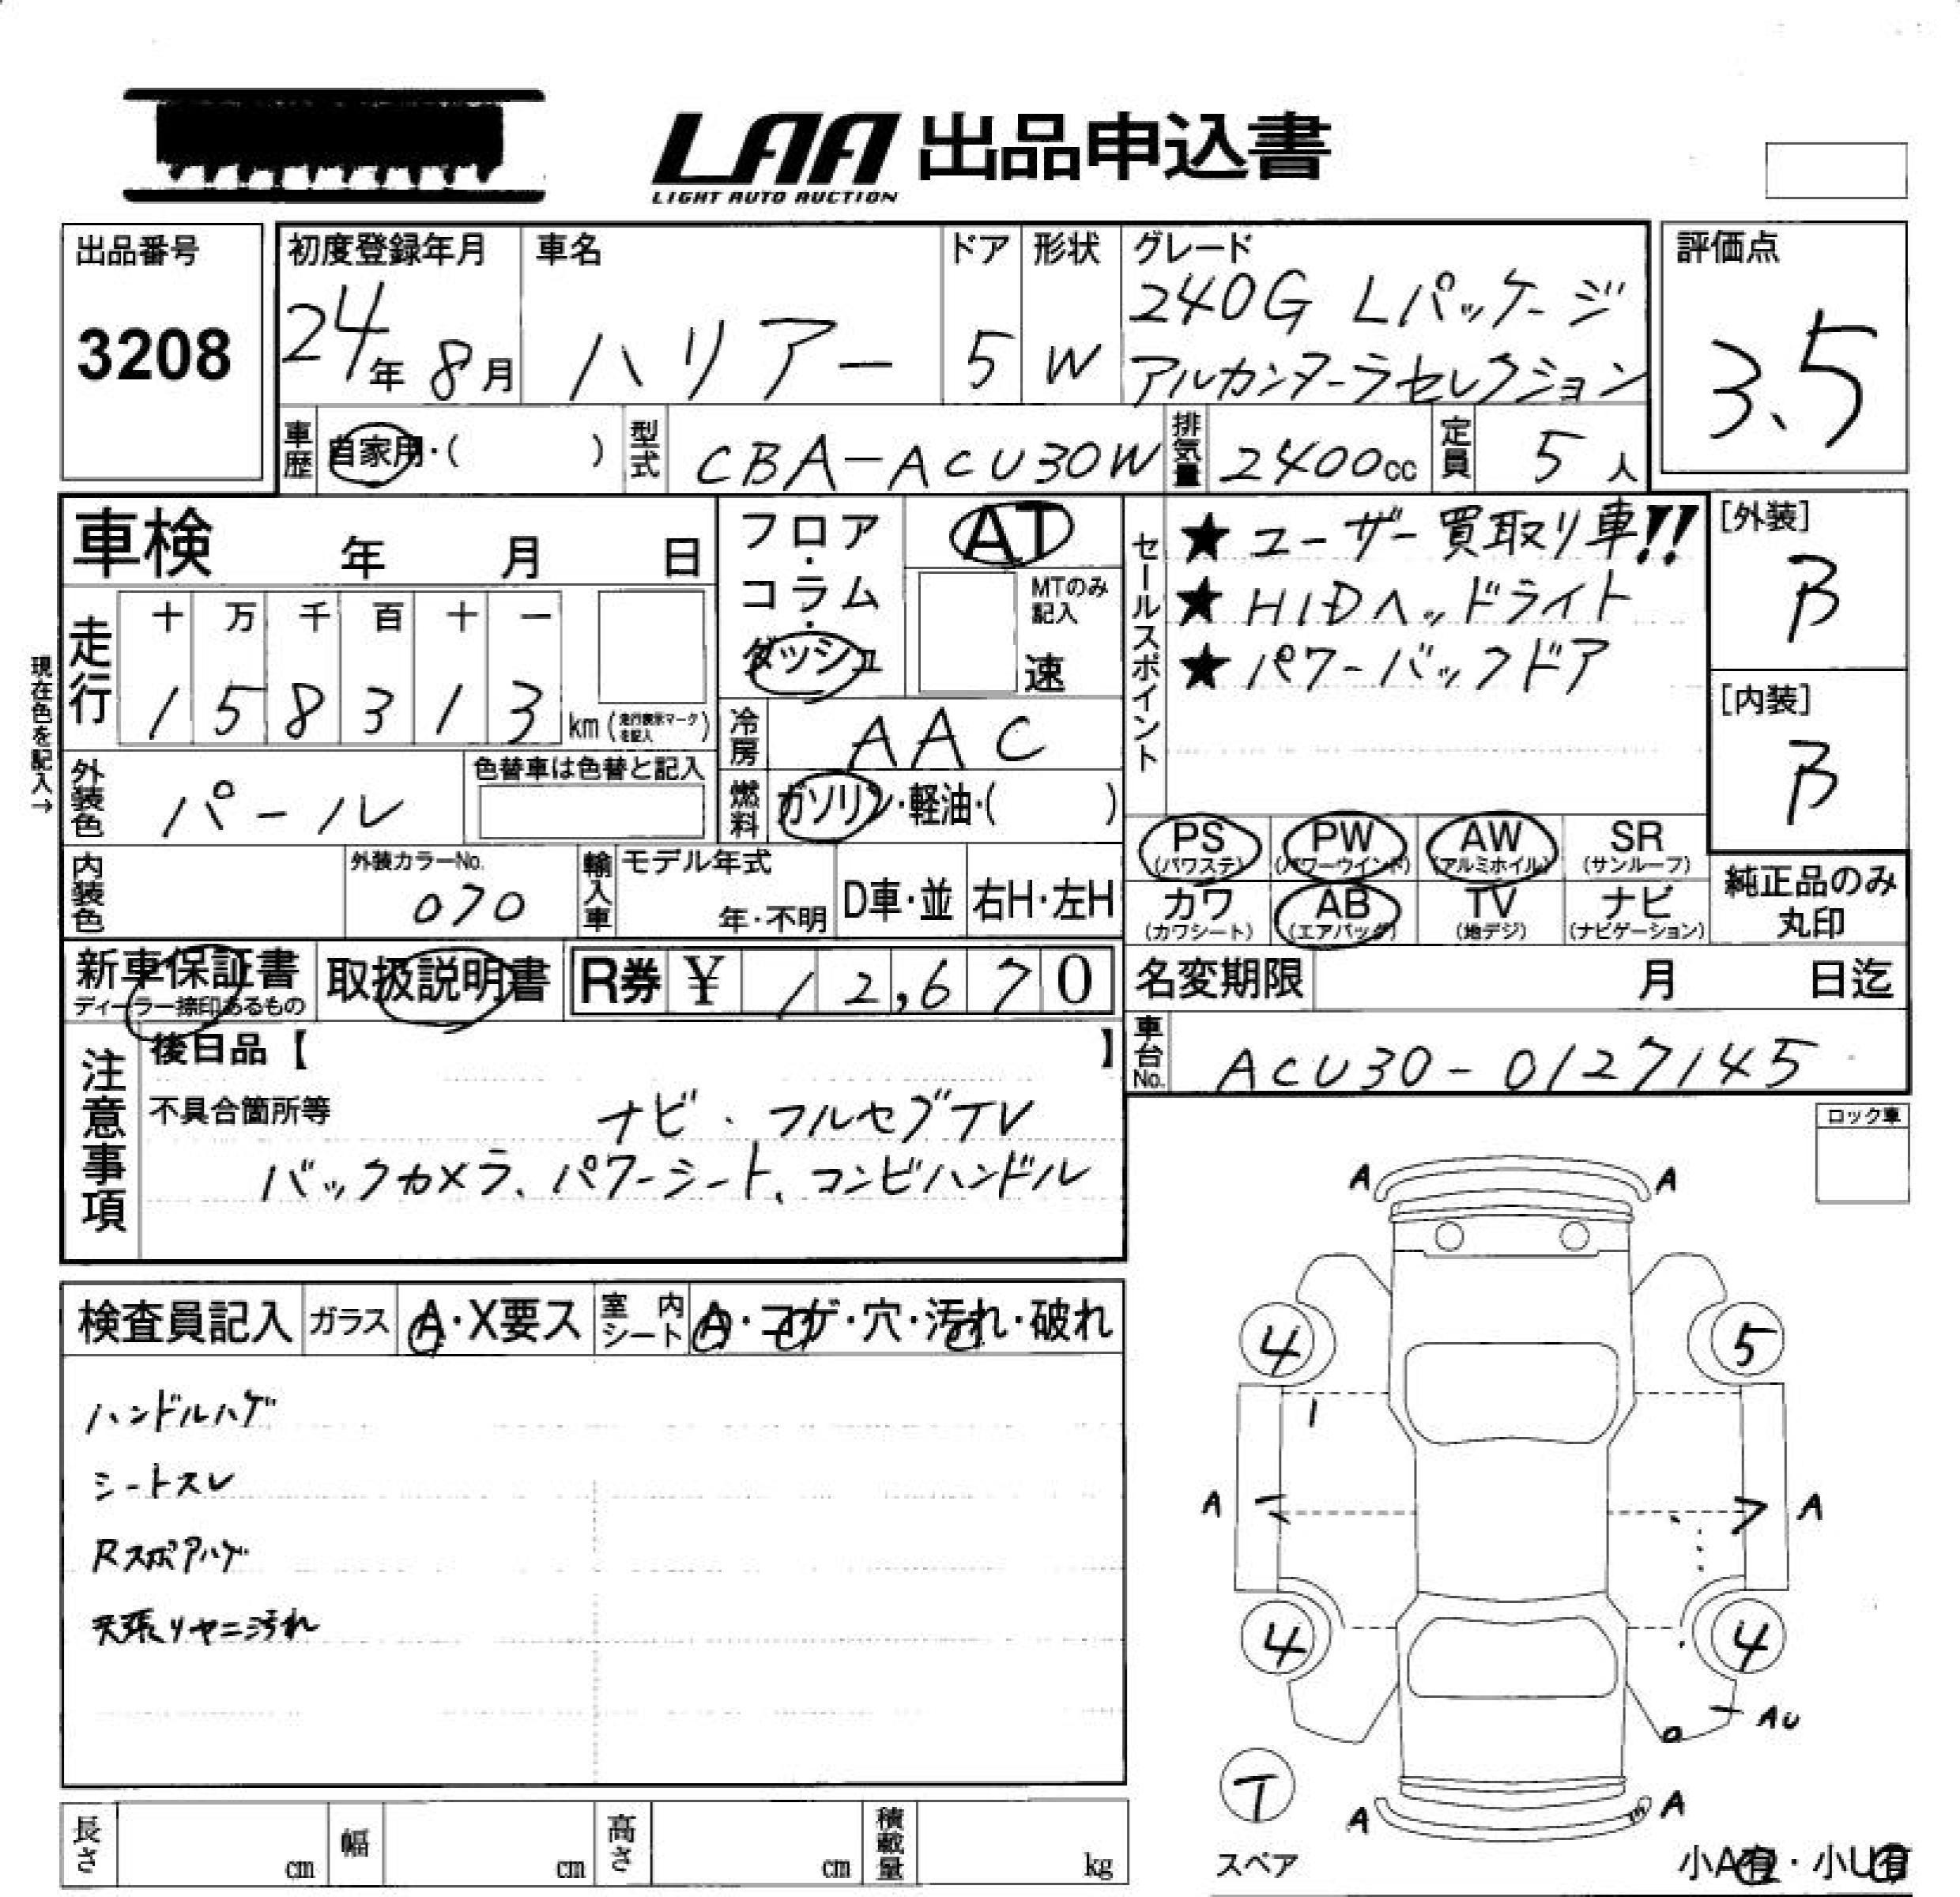 LAA 出品申込書
LIGHT AUTO AUCTION
出品番号
3208
初度登録年月
24年 8月
車名
ハリアー
ドア
5
形状
W
グレード
240G Lパッケージ
アルカンターラセレクション
評価点
3.5
車歴 自家用・( )
型式 CBA-ACU30W
排気量 2400cc
定員 5人
車検 年 月 日
フロア・コラム・ダッシュ
AT
MTのみ記入
速
セールスポイント
★ユーザー買取り車!!
★HIDヘッドライト
★パワーバックドア
[外装]
B
[内装]
B
現在色を記入→
走行
十 万 千 百 十 一
1 5 8 3 1 3 km (走行表示マークを記入)
冷房 AAC
外装色 パール
色替車は色替と記入
燃料 ガソリン・軽油・( )
内装色
外装カラーNo.
070
輸入車
モデル年式
年・不明
D車・並
右H・左H
PS (パワステ)
PW (パワーウインド)
AW (アルミホイル)
SR (サンルーフ)
カワ (カワシート)
AB (エアバッグ)
TV (地デジ)
ナビ (ナビゲーション)
純正品のみ
丸印
新車保証書
ディーラー捺印あるもの
取扱説明書
R券 ¥ 12,670
名変期限 月 日迄
車台No. ACU30-0127145
注意事項
後日品【 】
不具合箇所等 ナビ・フルセグTV
バックカメラ、パワーシート、コンビハンドル
ロック車
検査員記入 ガラス A・X要ス 室内シート A・コゲ・穴・汚れ・破れ
ハンドルハゲ
シートスレ
Rスポアハゲ
天張リヤニ汚れ
A A
4 5
A A
4 4
AU
T
スペア
A A
小A有・小U有
長さ cm
幅 cm
高さ cm
積載量 kg